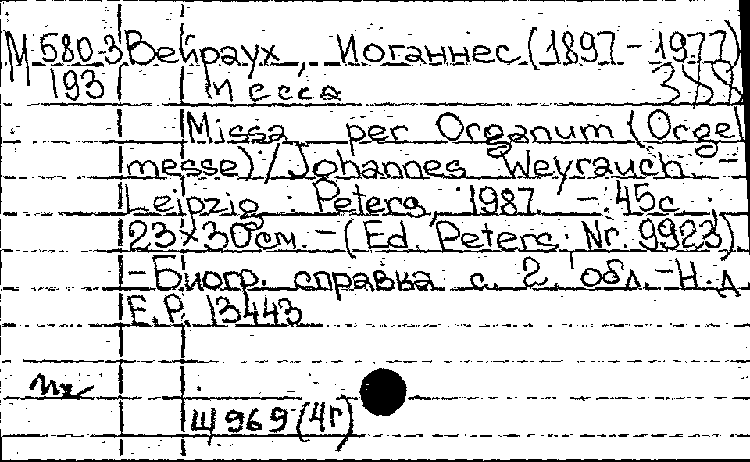 М 580.3 Вейраух, Иоганнес (1897-1977)
193 Месса 388
Missa per Organum (Orgel
messe) / Johannes Weyrauch. -
Leipzig : Peters, 1987. - 45 с.;
23×30см. - (Ed. Peters; Nr. 9923)
- Биогр. справка с. 2. обл. - Н.д.
E.P. 13443
Щ 969 (4г)